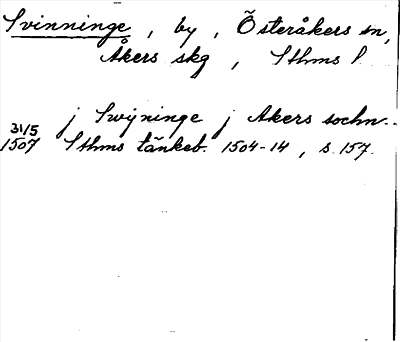 Svinninge, by, Österåkers sn,
Åkers skg, Sthms l.
j Swÿninge j Akers sochn..
31/5
1507 Sthms tänkeb. 1504-14, s. 157.